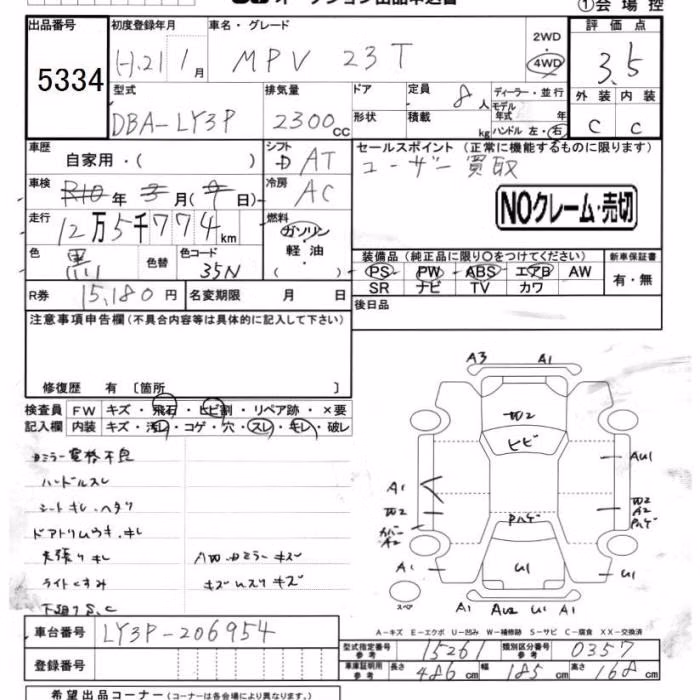 ①会場控
出品番号 5334
初度登録年月 H.21 1月
車名・グレード MPV 23T
2WD
4WD
評価点 3.5
型式 DBA-LY3P
排気量 2300cc
ドア
形状
定員 8人
積載 kg
ディーラー・並行
モデル年式 年
ハンドル 左・右
外装 内装
C C
車歴 自家用・( )
シフト D AT
セールスポイント (正常に機能するものに限ります)
ユーザー買取
車検 R10年3月(9日)
冷房 AC
NOクレーム・売切
走行 12万5千774km
燃料 ガソリン
軽油・
( )
色 黒 色替 色コード 35N
装備品 (純正品に限り○をつけてください)
新車保証書
PS PW ABS エアB AW
有・無
SR ナビ TV カワ
R券 15,180円 名変期限 月 日
後日品
注意事項申告欄 (不具合内容等は具体的に記入して下さい)
修復歴 有 〔箇所 〕
検査員 FW キズ・飛石・ヒビ割・リペア跡・×要
記入欄 内装 キズ・汚レ・コゲ・穴・スレ・キレ・破レ
A3 A1
ヒビ
AU1
A1
A2
Pハゲ
カバー
A2
Pハゲ
A1 U1 U1
スペア
A1 AU2 U1 A1
ハンドルスレ
シートキレ・ヘタリ
ドアトリムウキ、キレ
天張りキレ
ライトくすみ
下廻りS、C
キズ
車台番号 LY3P-206954
A-キズ E-エクボ U-凹み W-補修跡 S-サビ C-腐食 XX-交換済
登録番号
型式指定番号 参考 15261 類別区分番号 参考 0357
車庫証明用 参考 長さ 486cm 幅 185cm 高さ 168cm
希望出品コーナー (コーナーは各会場により異なります。)